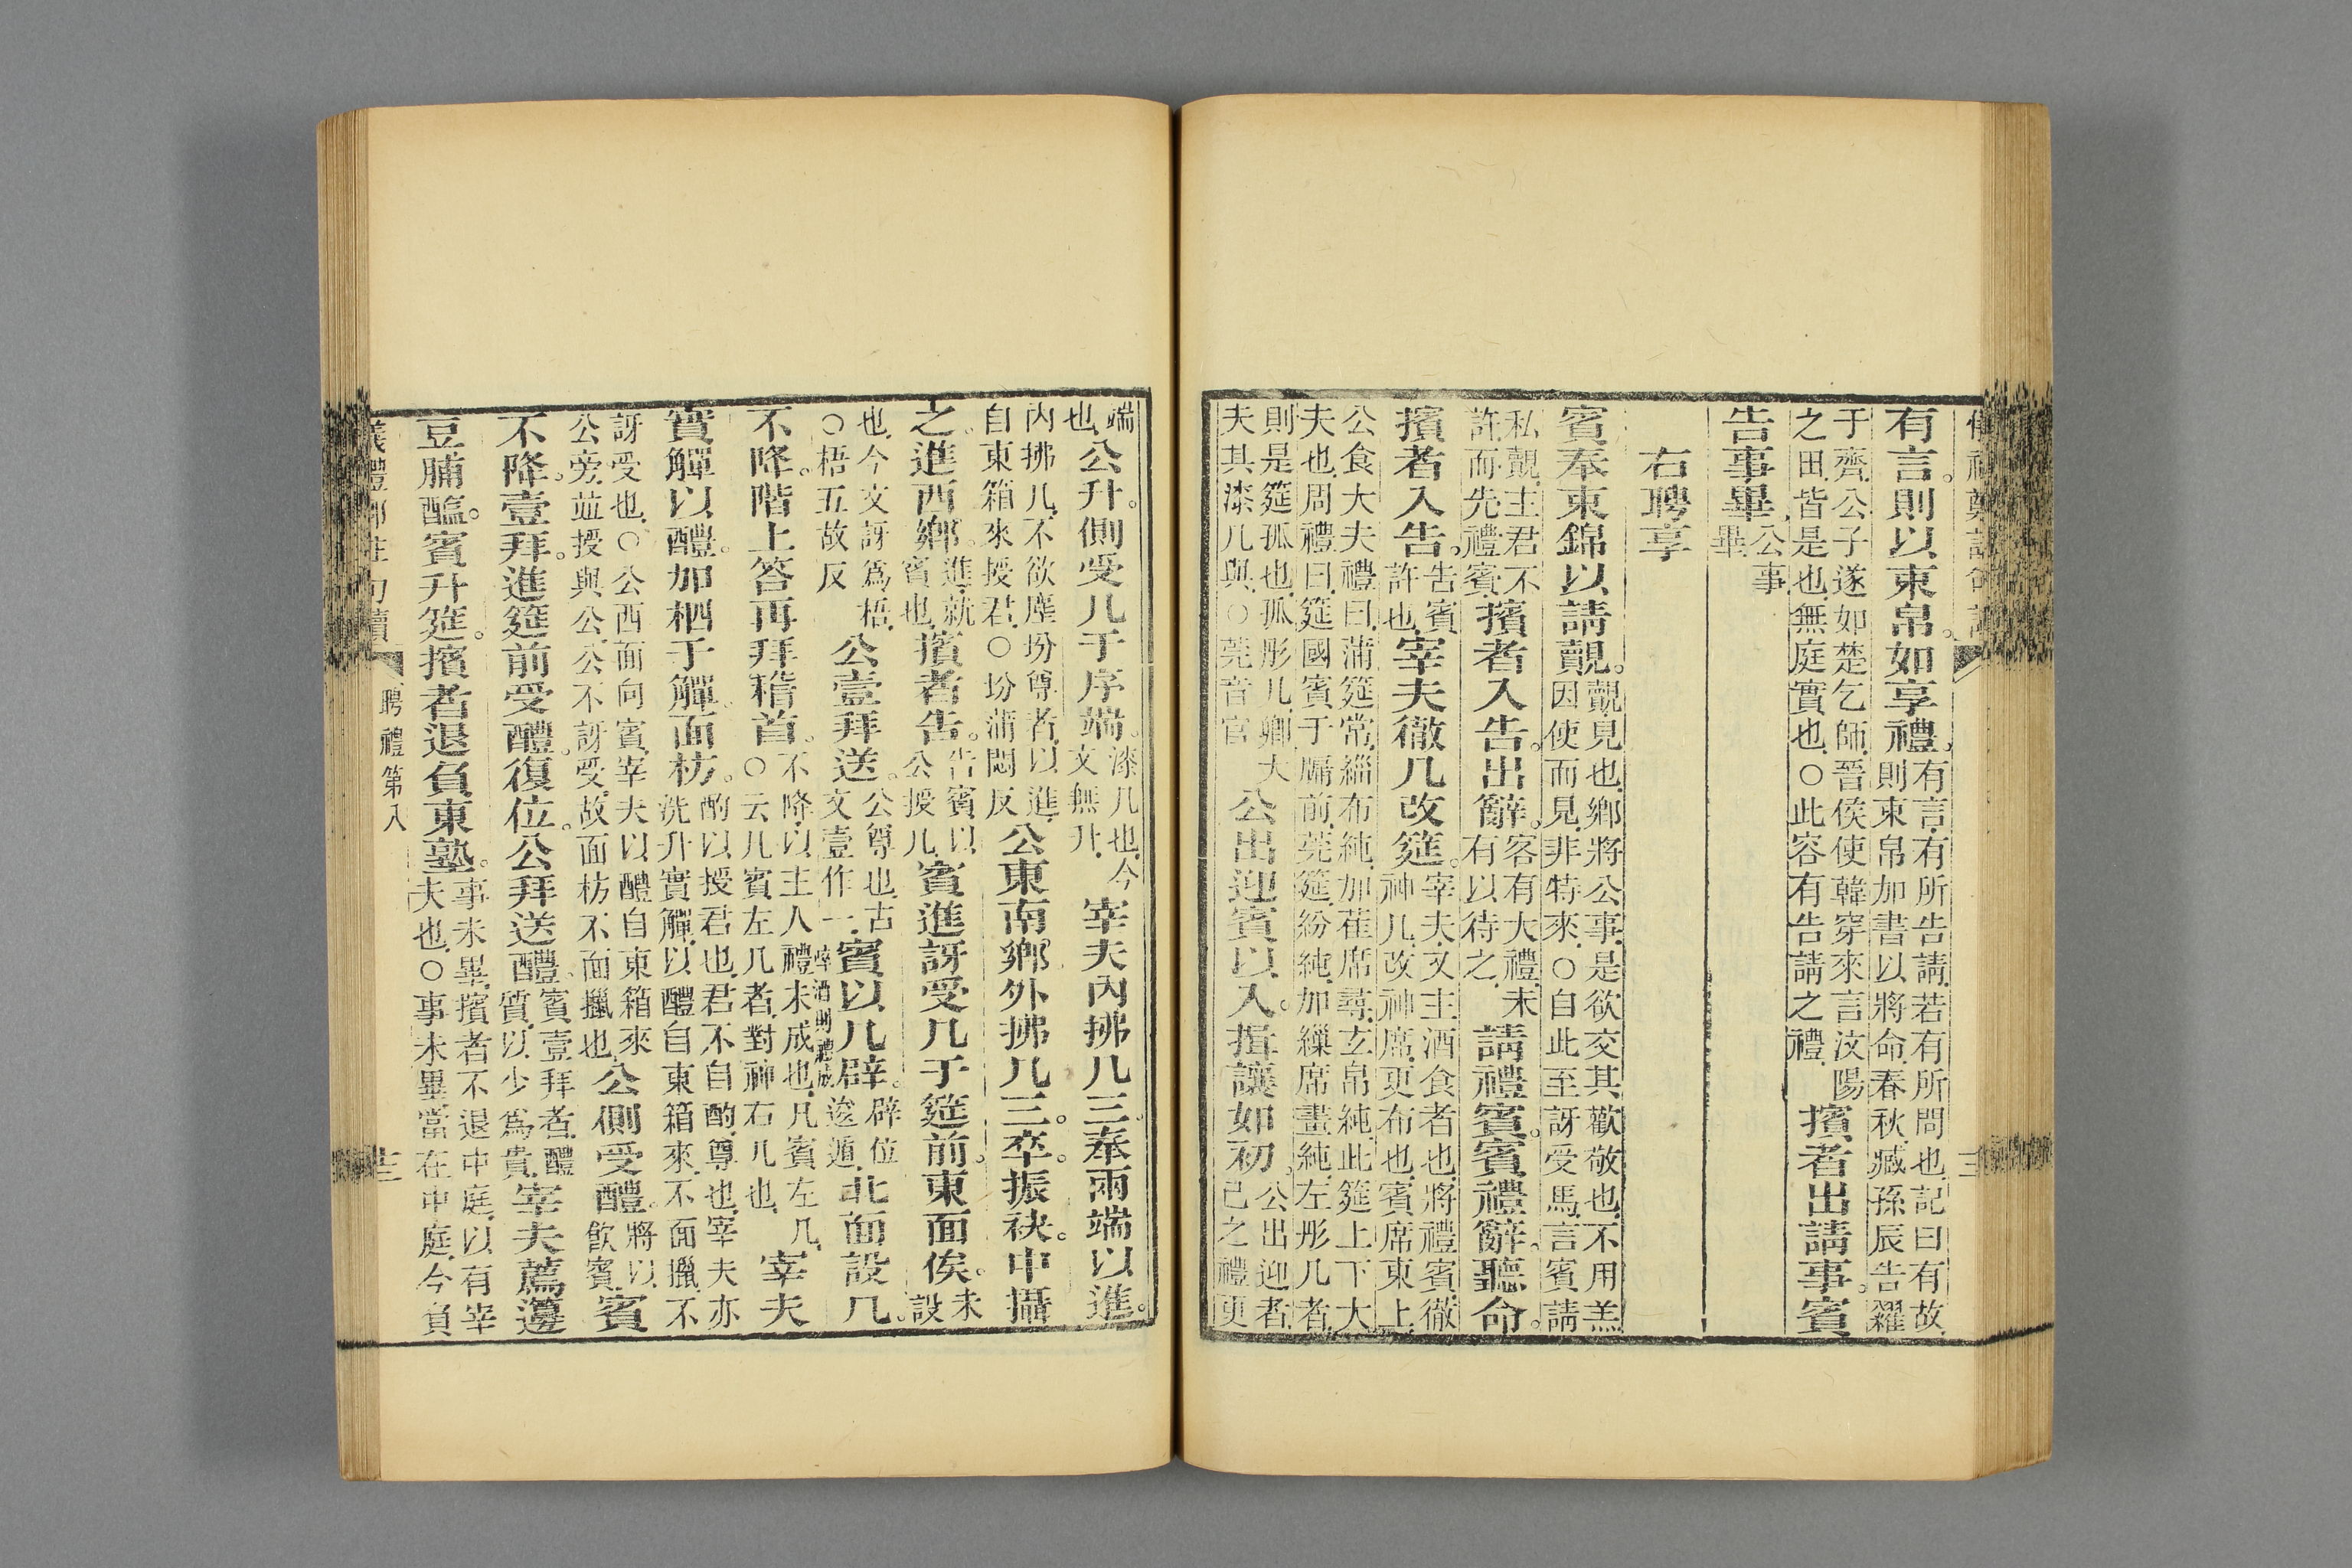 有言則以束帛如享禮有言有所告請若有所問也記曰有故則束帛加書以將命春秋臧孫辰告糴
于齊公子遂如楚乞師晉侯使韓穿來言汶陽之田皆是也無庭實也○此容有告請之禮擯者出請事賓
告事畢公事畢
右聘享
賓奉束錦以請覿覿見也鄉將公事是欲交其歡敬也不用羔因使而見非特來○自此至訝受馬言賓請
私覿主君不許而先禮賓擯者入告出辭客有大禮未有以待之請禮賓賓禮辭聽命
擯者入告告賓許也宰夫徹几改筵宰夫又主酒食者也將禮賓徹神几改神席更布也賓席東上
公食大夫禮曰蒲筵常緇布純加萑席尋玄帛純此筵上下大夫也周禮曰筵國賓于牖前莞筵紛純加繅席畫純左彤几者
則是筵孤也孤彤几卿大夫其漆几與○莞音官公出迎賓以入揖讓如初公出迎者己之禮更
端也公升側受几于序端漆几也今文無升宰夫內拂几三奉兩端以進
內拂几不欲塵坋尊者以進自東箱來授君○坋蒲悶反公東南鄉外拂几三卒振袂中攝
之進西鄉進就賓也擯者告告賓以公授几賓進訝受几于筵前東面俟未設
也今文訝為梧○梧五故反公壹拜送公尊也古文壹作一賓以几辟辟位逡遁北面設几
不降階上答再拜稽首不降以主人禮未成也凡賓左几○云几賓左几者對神右几也宰夫
實觶以醴加柶于觶面枋酌以授君也君不自酌尊也宰夫亦洗升實觶以醴自東箱來不面擸不
訝受也○公西面向賓宰夫以醴自東箱來公旁竝授與公公不訝受故面枋不面擸也公側受醴將以飲賓賓
不降壹拜進筵前受醴復位公拜送醴賓壹拜者醴質以少為貴宰夫薦籩
豆脯醢賓升筵擯者退負東塾事未畢擯者不退中庭以有宰夫也○事未畢當在中庭今負
聘禮第八